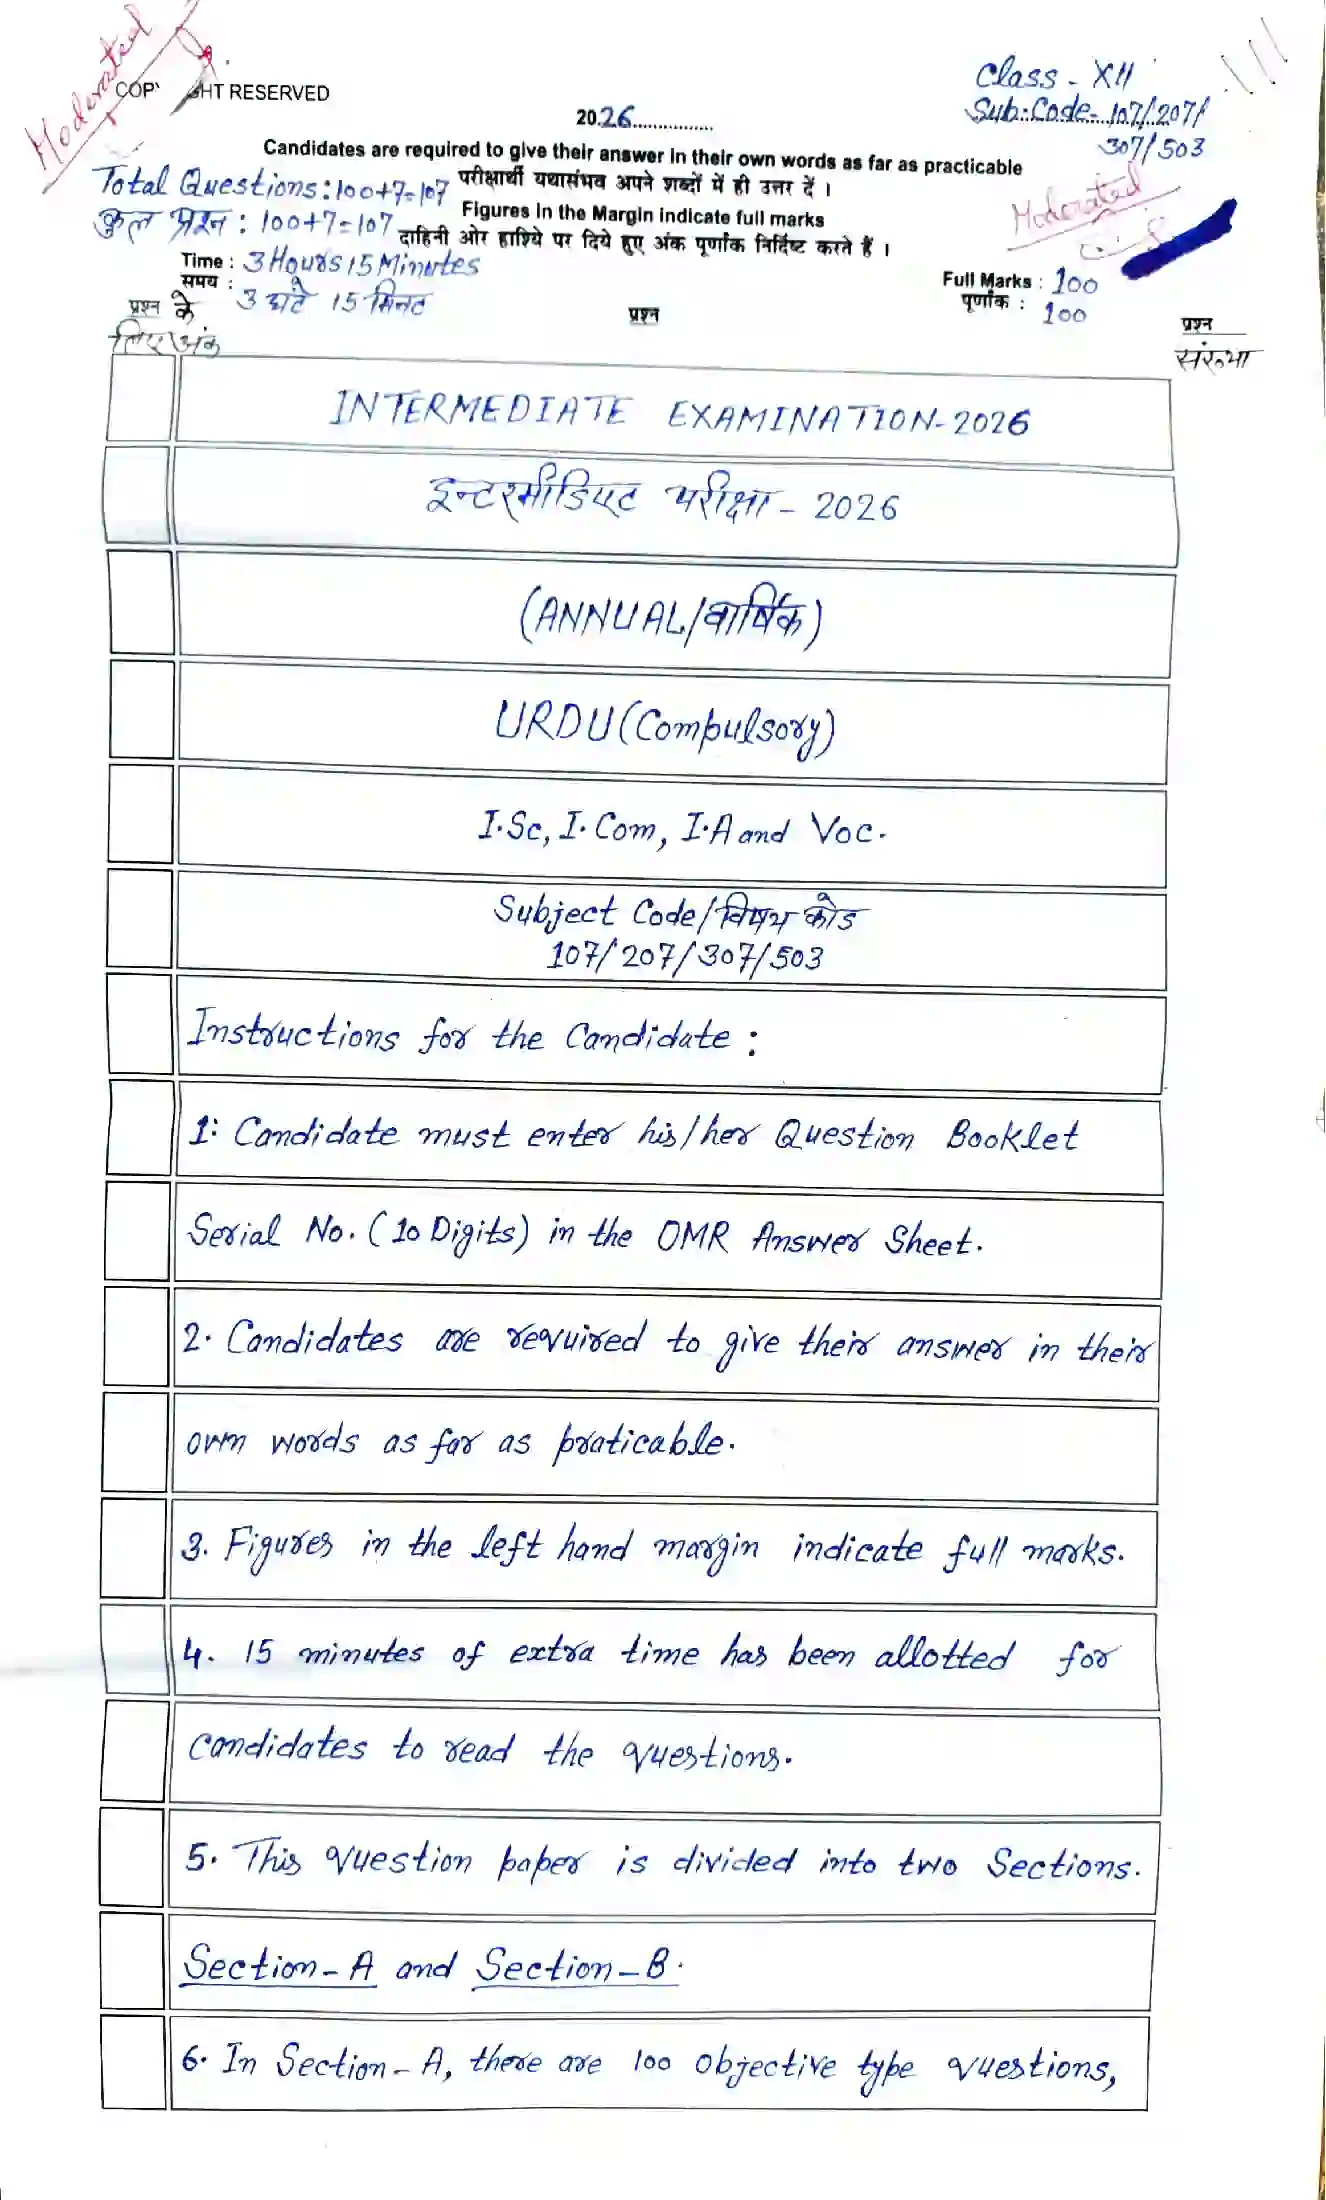 Moderated
COPY GHT RESERVED
Class - XII
Sub: Code- 107/207/
307/503
2026
Candidates are required to give their answer in their own words as far as practicable
Total Questions: 100+7=107 परीक्षार्थी यथासंभव अपने शब्दों में ही उत्तर दें ।
Moderated
Figures in the Margin indicate full marks
कुल प्रश्न : 100+7=107 दाहिनी ओर हाशिये पर दिये हुए अंक पूर्णांक निर्दिष्ट करते हैं ।
Time : 3 Hours 15 Minutes
Full Marks : 100
समय : 3 घंटे 15 मिनट
पूर्णांक : 100
प्रश्न के
लिए अंक
प्रश्न
प्रश्न
संख्या
INTERMEDIATE EXAMINATION-2026
इन्टरमीडिएट परीक्षा - 2026
(ANNUAL/वार्षिक)
URDU (Compulsory)
I.Sc, I. Com, I.A and Voc.
Subject Code/विषय कोड
107/207/307/503
Instructions for the Candidate :
1: Candidate must enter his/her Question Booklet
Serial No. (10 Digits) in the OMR Answer Sheet.
2. Candidates are required to give their answer in their
own words as far as praticable.
3. Figures in the left hand margin indicate full marks.
4. 15 minutes of extra time has been allotted for
candidates to read the questions.
5. This question paper is divided into two Sections.
Section-A and Section-B.
6. In Section-A, there are 100 objective type questions,